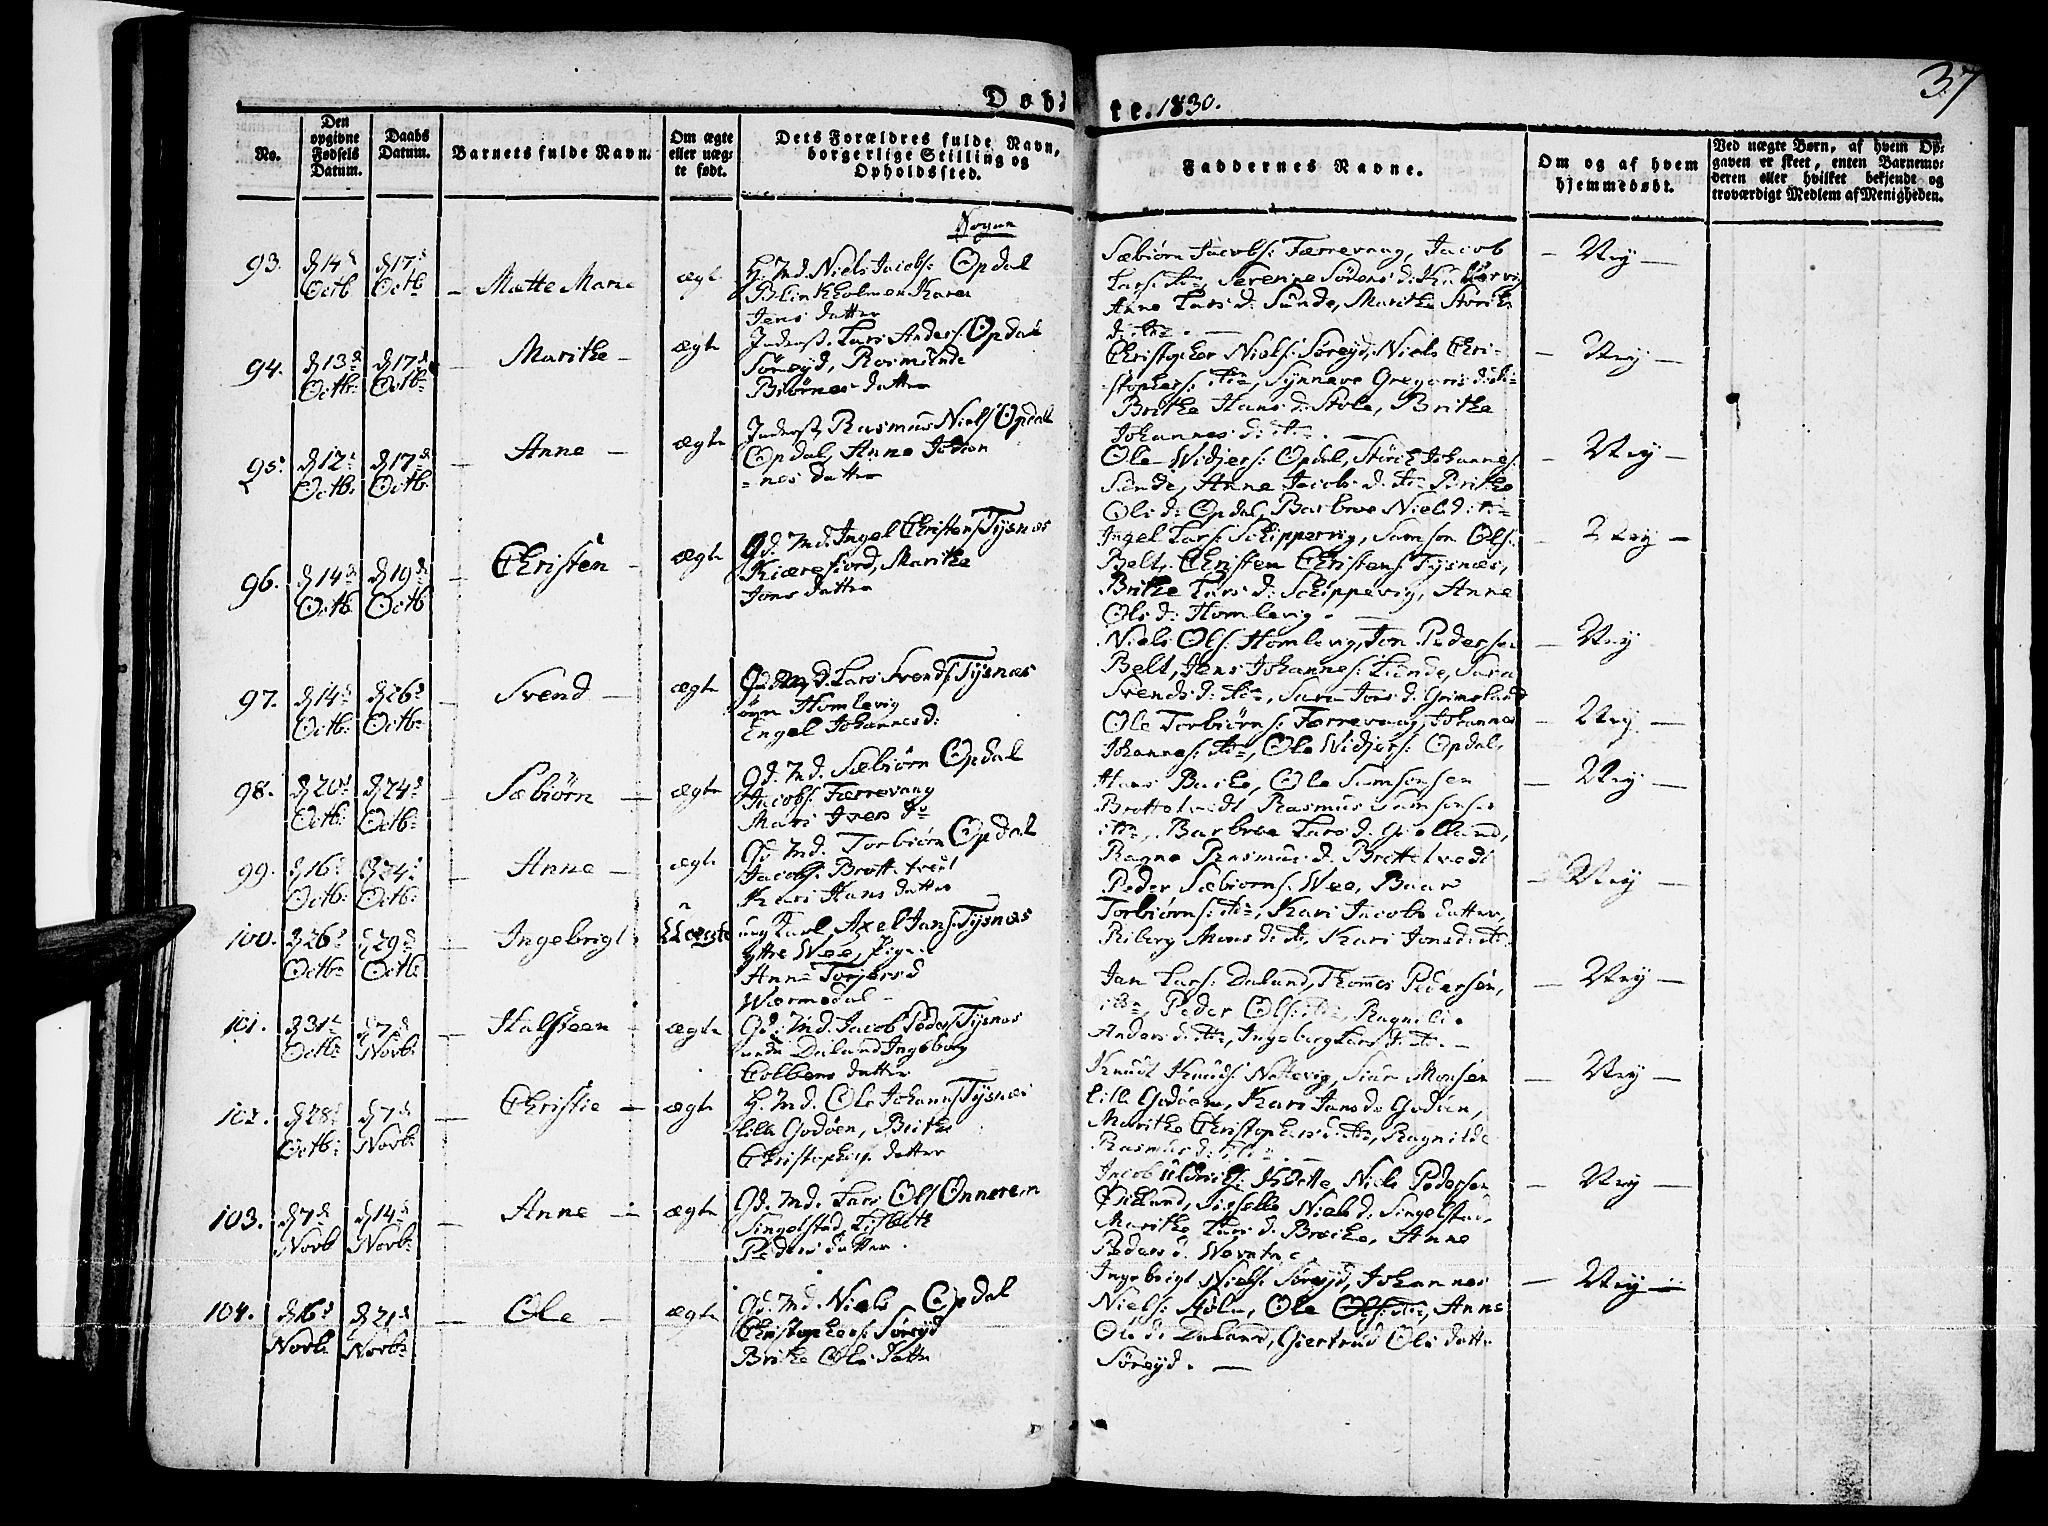 37
Døbte. 1830.
No.
Den opgivne Fødsels Datum.
Daabs Datum.
Barnets fulde Navn.
Om ægte eller uægte født.
Dets Forældres fulde Navn, borgerlige Stilling og Opholdssted.
Faddernes Navne.
Om og af hvem hjemmedøbt.
Ved uægte Børn, af hvem Opgaven er skeet, enten Barnemoderen eller hvilket bekjendt og troværdigt Medlem af Menigheden.
Sogne
93.
14
Octb
17
Octb
Mætte Marie
ægte
H. Md. Niels Jacobs: Opdal
Blinkholmen Karen
Jens datter
Sæbiørn Jacobs: Færrevaag, Jacob
Lars: Serene Sørens d:
Anne Lars d: Sunde, Marithe
Nej
94.
13
Octb:
17
Octb
Marithe
ægte
Inderst, Lars Anders: Opdal
Sørøyd, Rosmunde
Biørnes datter
Christopher Niels: Sørøyd, Niels Chri-
stophers: Synneve Gregoris d:
Brithe Hans d: Stole, Brithe
Johannes d:
Nej
95.
12
Octb:
17
Octb
Anne
ægte
Inderst, Rasmus Niels Opdal
Opdal, Anne Johan
=nes datter
Ole Widjers: Opdal, Størch Johannes:
Sunde, Anne Jacobs d: Brithe
Ols d: Opdal, Barbroe Niels d:
Nej
96.
14
Octb
19
Octb
Christen
ægte
Gd. Md. Ingel Christens Tysnæs
Kiærefiord, Marithe
Jons datter
Ingel Lars: Schippervig, Samson Ols:
Belt, Christen Christens Tysnæs,
Brithe Lars d: Schippevig, Anne
Ols d: Homlevig.
Nej
97.
14
Octb:
26
Octb:
Svend
ægte
Lars Svends Tysnæs
Homlevig
Engel Johannes d:
Niels Ols: Homlevig, Jon Pedersen
Belt, Jens Johannes: Lunde, Sara
Svends d: Sara Jons d: Grimsland
Nej
98.
20
Octb:
24
Octb:
Sæbiørn
ægte
Gd. Md. Sæbiørn Opdal
Jacobs: Færrevaag
Mari Ivers dr
Ole Torbiørns: Færrevaag, Johannes
Johannes: Ole Widjers: Opdal,
Nej
99.
16
Octb:
24
Octb:
Anne
ægte
Gd. Md. Torbiørn Opdal
Jacobs: Brottetvedt
Kari Hans datter
Hans Ole Samsonsen
Brottetvedt Rasmus Samsonsen
Barbroe Lars d.
Ragna Rasmus d. Brottetvedt
Nej
100.
26
Octb
29
Octb:
Ingebrigt
Uægte
ung Karl Axel Jans: Tysnæs
ytre Wee, Pige
Anna Torjers d
Wærmedal
Peder Sæbiørns: Wee, Baar
Torbiørns: Kari Jacobs datter,
Riberg Mons d: Kari Jons d:
Nej
101.
31
Octb:
7
Novb
Halsteen
ægte
Gd. Md. Jacob Peders Tysnæs
Daland Ingeborg
Colbens datter
Jan Lars: Daland, Thomes Pedersen,
Peder Ols:
Anders d: Ingeborg Lars d:
Nej
102.
28
Octb:
7
Novb:
Christie
ægte
H. Md. Ole Johanns Tysnæs
lille Godøen, Brithe
Christophers datter
Knudt Knuds: Nattevig, Siur Monsen
lille Godøen, Kari Jans d: Godøen,
Marithe Christophers d: Ragnilde
Rasmus d:
Nej
103.
7
Novb
14
Novb:
Anne
ægte
Gd. Md. Lars Ols Onnerem
Singelstad, Lisbeth
Peders datter.
Jacob Uldrichs: Niels Pedersen
Niels d: Singelstad,
Marithe Lars d. Anne
Peders d.
Nej
104.
16
Novb:
21
Novb:
Ole
ægte
Gd. Md. Niels Opdal
Christophers: Sørøyd
Brithe Ols datter
Ingebrigt Niels: Sørøyd, Johannes
Niels: Ole Anne
Ols d: Daland, Giertrud Ols datter
Sørøyd.
Nej